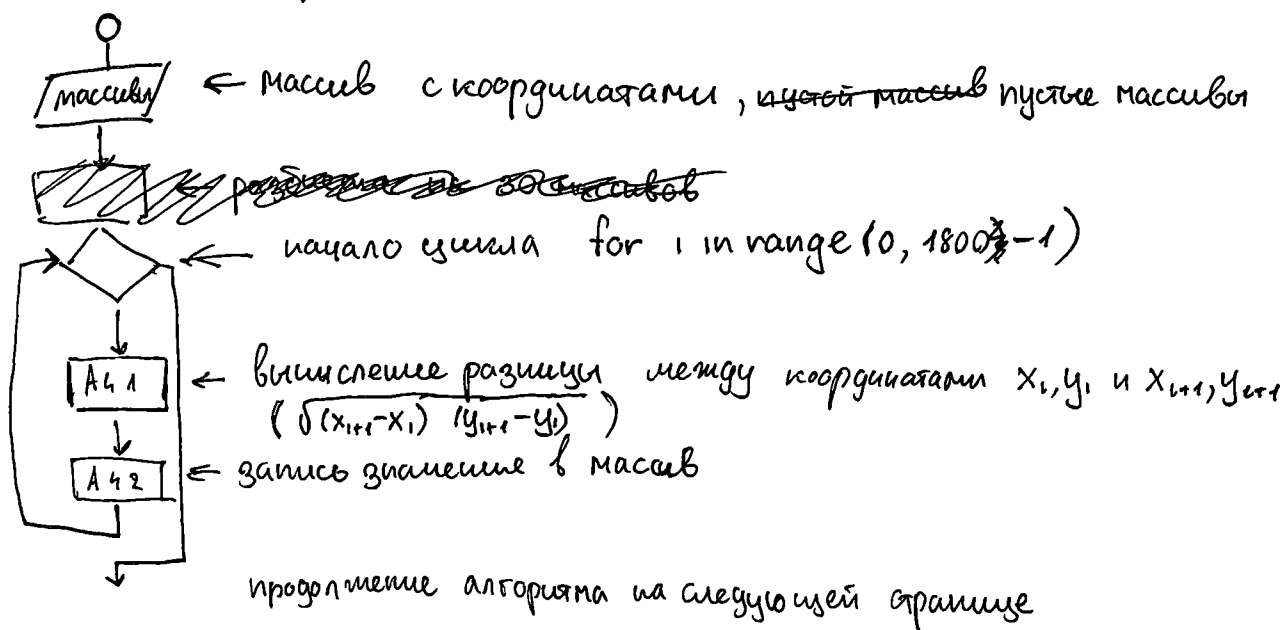 массивы ← массив с координатами, пустой массив пустые массивы
← начало цикла for i in range (0, 1800-1)
АЧ1 ← вычисление разницы между координатами xᵢ, yᵢ и xᵢ₊₁, yᵢ₊₁
(√(xᵢ₊₁-xᵢ) (yᵢ₊₁-yᵢ))
АЧ2 ← запись значение в массив
продолжение алгоритма на следующей странице